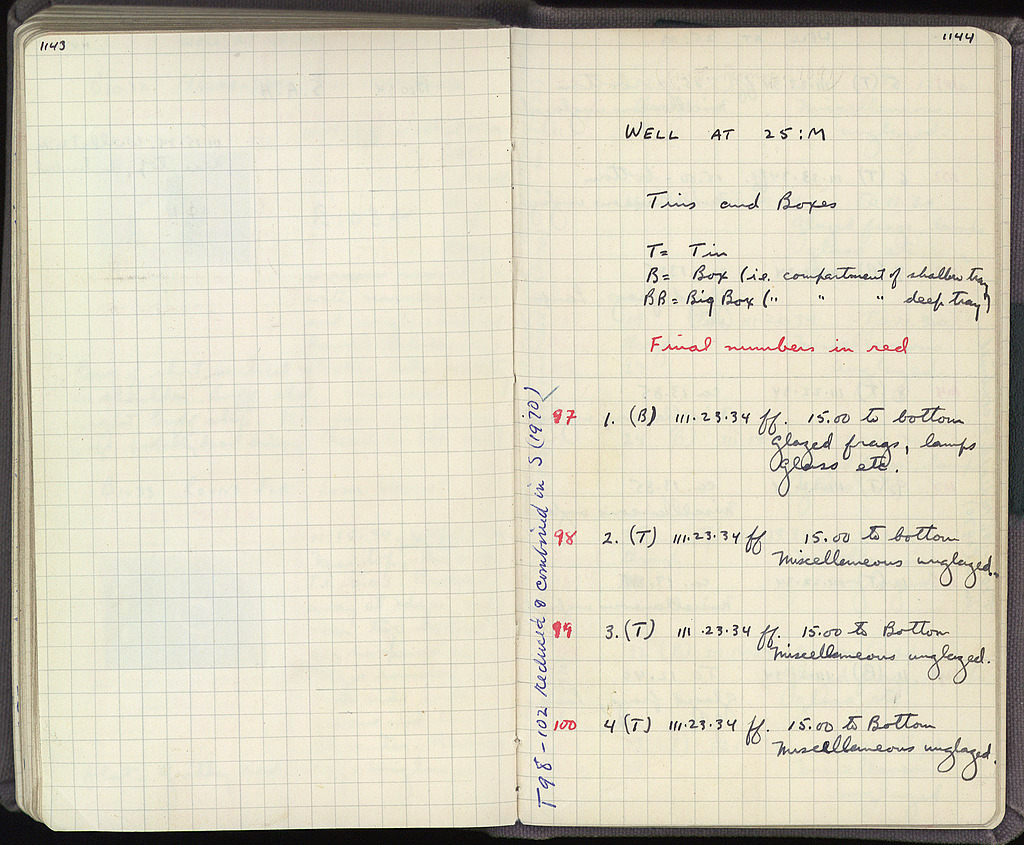 1143
1144
WELL AT 25:M
Tins and Boxes
T= Tin
B= Box (i.e. compartment of shallow tray)
BB = Big Box (" " " deep tray)
Final numbers in red
97 1. (B) 111.23.34 ff. 15.00 to bottom
glazed frags, lamps
glass etc.
98 2. (T) 111.23.34 ff 15.00 to bottom
Miscellaneous unglazed.
99 3. (T) 111.23.34 ff. 15.00 to Bottom
Miscellaneous unglazed.
100 4 (T) 111.23.34 ff. 15.00 to Bottom
Miscellaneous unglazed.
T98-102 reduced & combined in S (1970) ✓